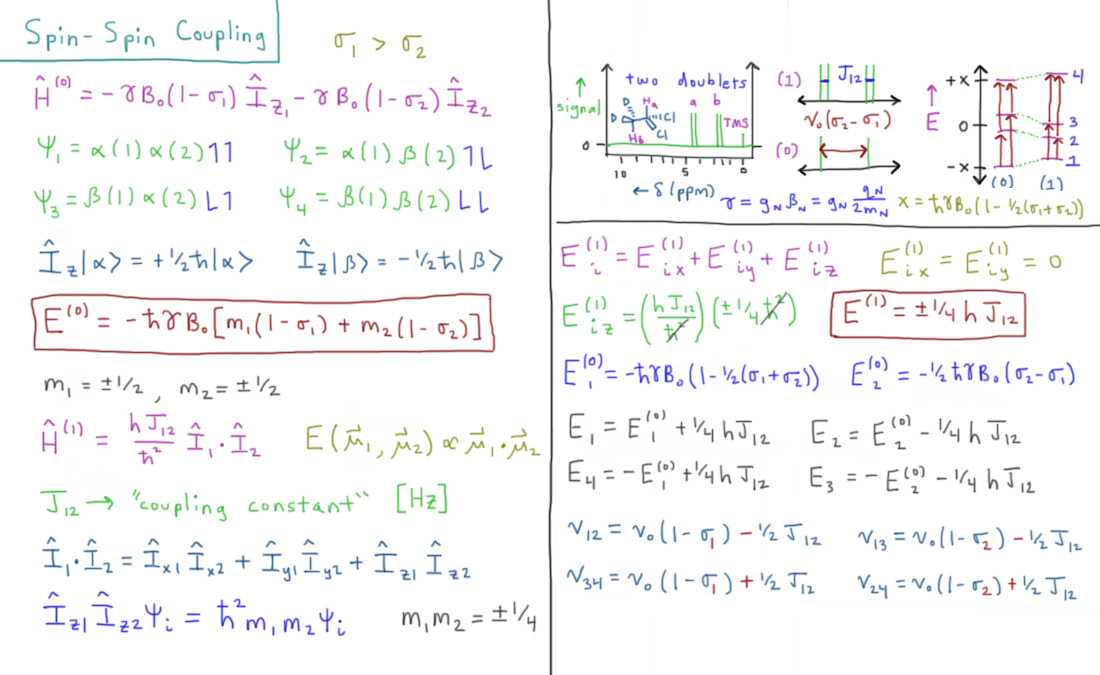 Spin-Spin Coupling
σ₁ > σ₂
Ĥ⁽⁰⁾ = -γB₀(1-σ₁) Î_z₁ - γB₀(1-σ₂) Î_z₂
Ψ₁ = α(1)α(2)↿↿ Ψ₂ = α(1)β(2)↿⇂
Ψ₃ = β(1)α(2)⇂↿ Ψ₄ = β(1)β(2)⇂⇂
Î_z|α> = +½ħ|α> Î_z|β> = -½ħ|β>
E⁽⁰⁾ = -ħγB₀[m₁(1-σ₁) + m₂(1-σ₂)]
m₁ = ±1/2, m₂ = ±1/2
Ĥ⁽¹⁾ = hJ₁₂/ħ² Î₁·Î₂ E(μ⃗₁, μ⃗₂) ∝ μ⃗₁·μ⃗₂
J₁₂ → "coupling constant" [Hz]
Î₁·Î₂ = Î_x₁ Î_x₂ + Î_y₁ Î_y₂ + Î_z₁ Î_z₂
Î_z₁ Î_z₂ Ψᵢ = ħ² m₁m₂Ψᵢ m₁m₂ = ±1/4
signal
two doublets
D Hₐ
D Cl
H_b Cl
a b
TMS
0
10 5 0
← δ (ppm)
(1) J₁₂
ν₀(σ₂-σ₁)
(0)
E
+x
0
-x
4
3
2
1
(0) (1)
γ = g_N β_N = g_N q_N/2m_N x = ħγB₀(1-½(σ₁+σ₂))
Eᵢ⁽¹⁾ = E_ix⁽¹⁾ + E_iy⁽¹⁾ + E_iz⁽¹⁾ E_ix⁽¹⁾ = E_iy⁽¹⁾ = 0
E_iz⁽¹⁾ = (hJ₁₂/ħ²)(±1/4ħ²) E⁽¹⁾ = ±1/4 h J₁₂
E₁⁽⁰⁾ = -ħγB₀(1-½(σ₁+σ₂)) E₂⁽⁰⁾ = -½ħγB₀(σ₂-σ₁)
E₁ = E₁⁽⁰⁾ + 1/4 hJ₁₂ E₂ = E₂⁽⁰⁾ - 1/4 h J₁₂
E₄ = -E₁⁽⁰⁾ + 1/4 hJ₁₂ E₃ = -E₂⁽⁰⁾ - 1/4 h J₁₂
ν₁₂ = ν₀(1-σ₁) - ½ J₁₂ ν₁₃ = ν₀(1-σ₂) - ½ J₁₂
ν₃₄ = ν₀(1-σ₁) + ½ J₁₂ ν₂₄ = ν₀(1-σ₂) + ½ J₁₂